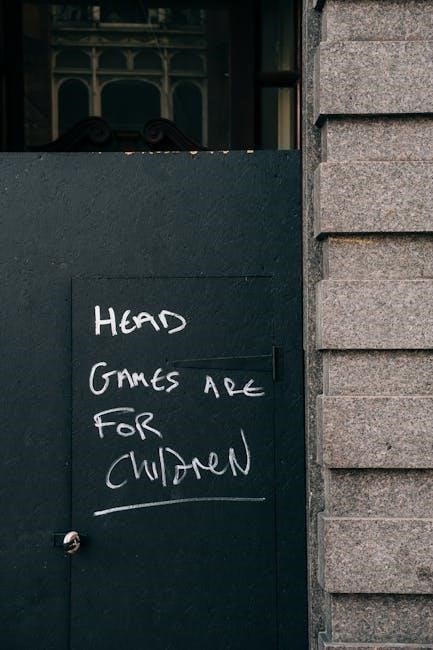 HEAD
GAMES ARE
FOR
ChildreN